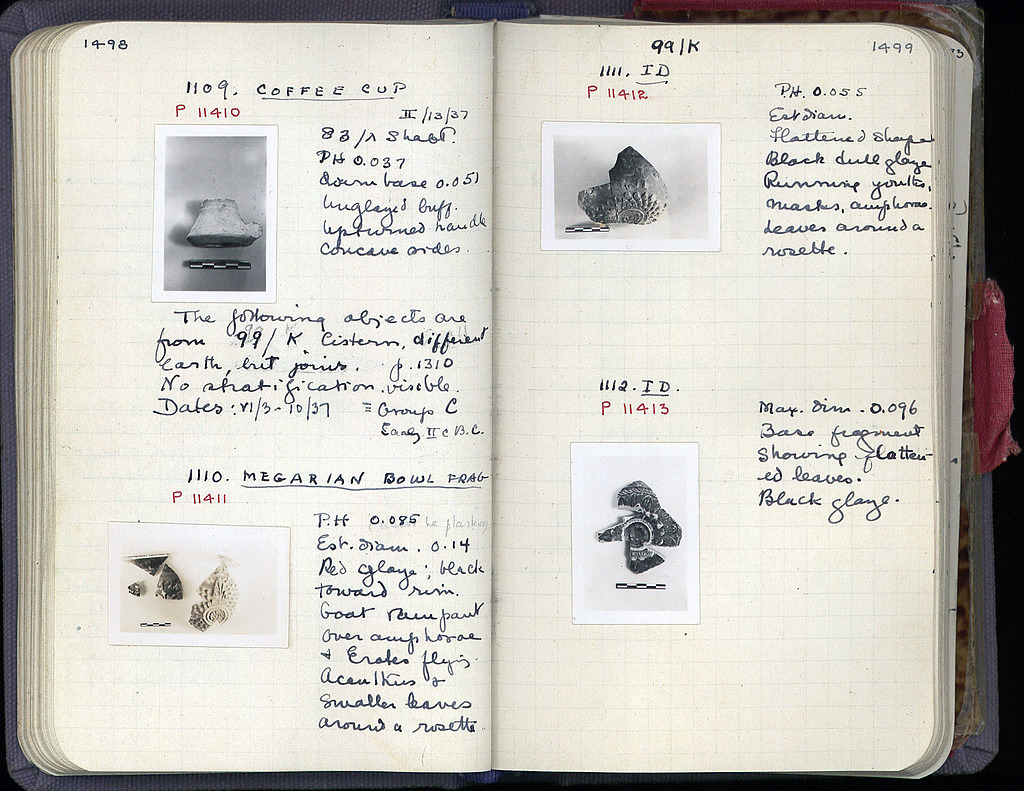 1498
1109. COFFEE CUP
P 11410
II/13/37
83/Λ Shaft.
PH 0.037
diam base 0.051
Unglazed buff.
Upturned handle
Concave sides.
The following objects are
from 99/K Cistern, different
earth, but joins. p. 1310
No stratification visible.
Dates: VI/3-10/37 = Group C
Early II c B.C.
1110. MEGARIAN BOWL FRAG
P 11411
P.H 0.085
Est. diam. 0.14
Red glaze; black
toward rim.
Goat rampant
over amphorae
& Erotes flying.
Acanthus &
smaller leaves
around a rosette.
99/K
1499
1111. ID
P 11412
P.H. 0.055
Est diam.
Flattened shape
Black dull glaze
Running youths,
masks, amphoras.
Leaves around a
rosette.
1112. ID.
P 11413
Max. dim. 0.096
Base fragment
showing flatten-
ed leaves.
Black glaze.